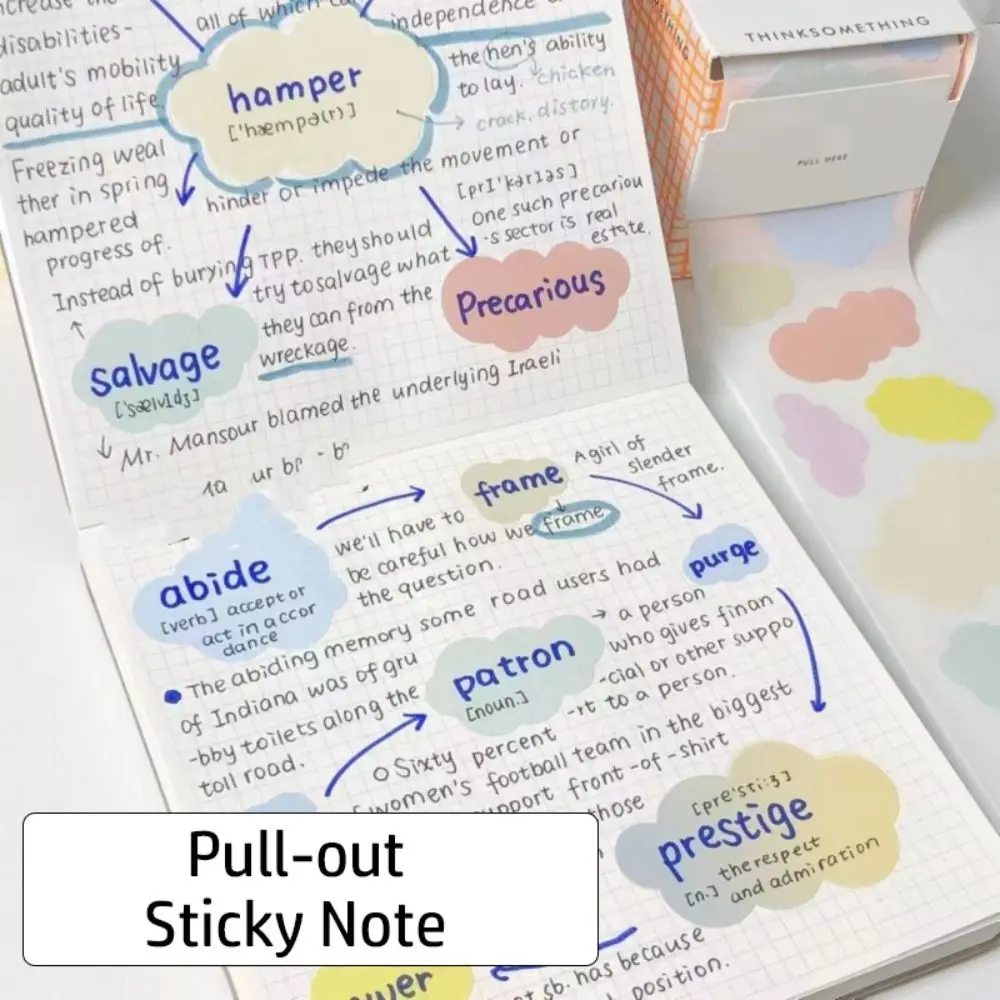 increase the
disabilities-
adult's mobility
quality of life.
all of which
independence
hamper
['hæmpə(r)]
the hen's ability
to lay. chicken
crack, distory.
Freezing weal
ther in spring
hampered
progress of.
hinder or impede the movement or
[prɪ'kərɪəs]
One such precariou
-s sector is real
estate.
Precarious
Instead of burying TPP. they should
try to salvage what
they can from the
wreckage.
salvage
['sælvɪdʒ]
Mr. Mansour blamed the underlying Iraeli
abide
[verb] accept or
act in accor
dance
frame
A girl of
slender
frame.
we'll have to
be careful how we frame
the question.
purge
The abiding memory some road users had
of Indiana was of gru
-bby toilets along the
toll road.
patron
[noun.]
→ a person
who gives finan
-cial or other suppo
-rt to a person.
Sixty percent
women's football team in the biggest
support front-of-shirt
those
[pre'sti:ʒ]
prestige
[n.] the respect
and admiration
sb. has because
position.
THINKSOMETHING
PULL HERE
Pull-out
Sticky Note